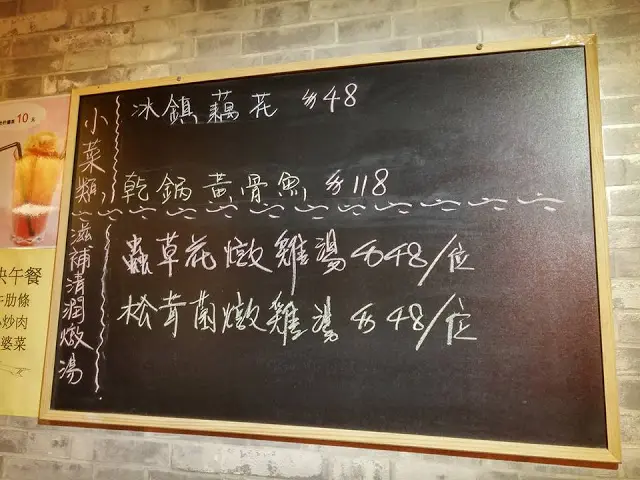 小菜類
冰鎮藕花 $48
乾鍋黃骨魚 $118
滋補清潤燉湯
蟲草花燉雞湯 $48/位
松茸菌燉雞湯 $48/位
10元
午餐
肋條
炒肉
婆菜